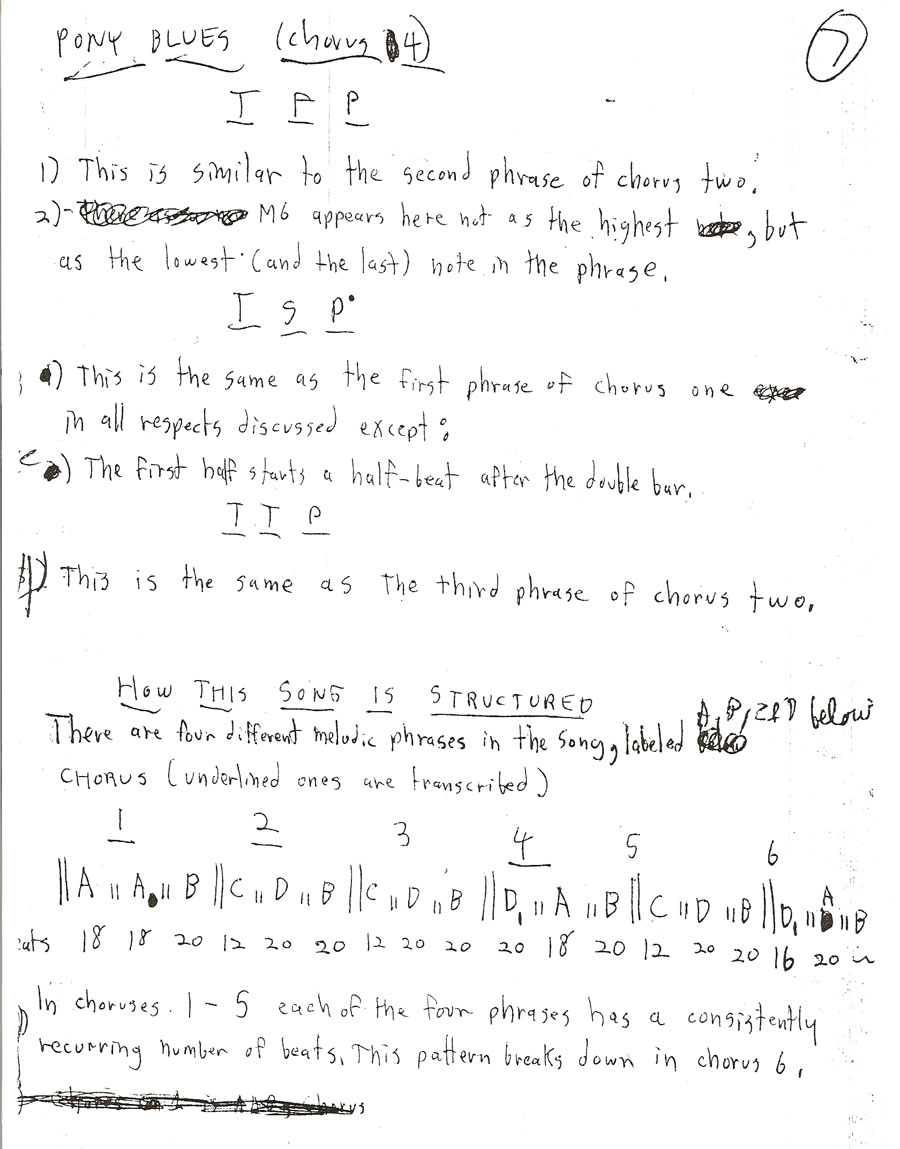 PONY BLUES (chorus 4)
7
I F P
1) This is similar to the second phrase of chorus two.
2) M6 appears here not as the highest, but
as the lowest (and the last) note in the phrase.
I S P
1) This is the same as the first phrase of chorus one
in all respects discussed except:
2) The first half starts a half-beat after the double bar.
I T P
1) This is the same as the third phrase of chorus two.
HOW THIS SONG IS STRUCTURED
There are four different melodic phrases in the song, labeled A, B, C & D below
CHORUS (underlined ones are transcribed)
1 2 3 4 5 6
|| A || A || B || C || D || B || C || D || B || D, || A || B || C || D || B || D, || A || B
eats 18 18 20 12 20 20 12 20 20 20 18 20 12 20 20 16 20
In choruses 1-5 each of the four phrases has a consistently
recurring number of beats. This pattern breaks down in chorus 6.